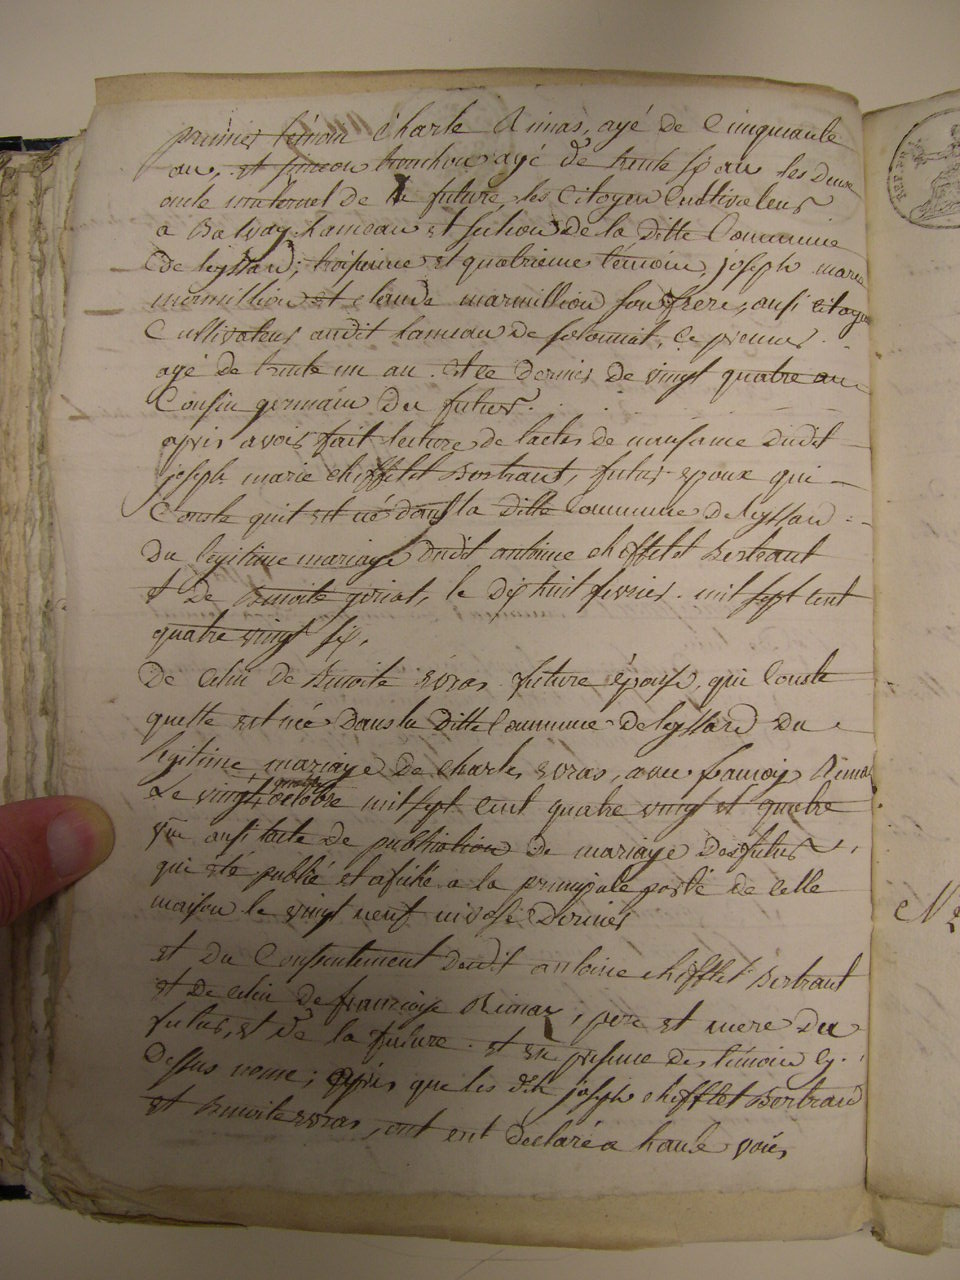 premier témoin Charle Rimas, agé de Cinquante
an, et simeon trouchon agé de trente six an les deux
oncle maternel de la future, les Citoyen Cultivateur
a Balvay hameau et section de la ditte Commune
de leyssard; troisieme et quatrieme témoin, joseph marie
marmillion et claude marmillion son frere, ausi citoyen
Cultivateur audit hameau de solomiat, Ce premier
agé de trente un an. et le dernier de vingt quatre an
Cousin germain du futur.
apris avoir fait lecture de lactes de naissance dudit
joseph marie chifflet Bertrant, futur epoux qui
Conste quil est né dans la ditte Commune de leyssard
du legitime mariage dudit antoine chifflet Bertrant
et De Benoite goriat, le dix huit fevrier mil sept cent
quatre vingt six,
De celui de Benoite evras future épouse, qui Conste
quelle est née Dans la ditte Commune de leyssard du
legitime mariage De charles evras, avec françoise Rimas
Le vingt octobre mil sept cent quatre vingt et quatre
vu ausi lacte de publication de mariage des futur
qui été publié et afiché a la principale porte de celle
maison le vingt neuf nivose dernier
et du Consentement dudit antoine chifflet Bertrant
et De celui de françoise Rimas, pere et mere du
futur, et de la future. et en presence des témoin cy.
Dessus nomé; apris que les dit joseph chifflet Bertrand
et Benoite evras, ont ent déclaré a haute voix,